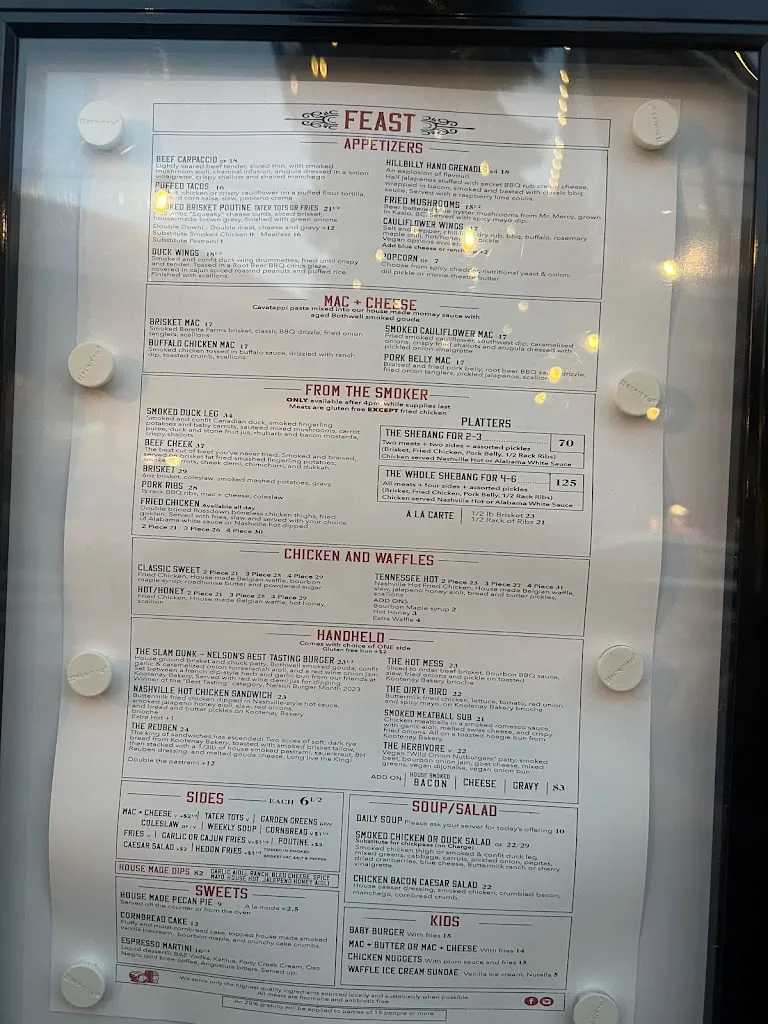 FEAST
APPETIZERS
BEEF CARPACCIO GF 18
Lightly seared beef tender, sliced thin, with smoked
mushroom aioli, charcoal infusion, arugula dressed in a onion
vinaigrette, crispy shallots and shaved manchego
PUFFED TACOS 16
chicken or crispy cauliflower on a puffed flour tortilla,
corn salsa, slaw, poblano crema
SMOKED BRISKET POUTINE TATER TOTS OR FRIES 21 1/2
"Squeaky" cheese curds, sliced brisket,
house made brown gravy, finished with green onions.
Double Down!.. Double meat, cheese and gravy +12
Substitute Smoked Chicken Meatless 16
Substitute Pastrami 1
DUCK WINGS 18 1/2
Smoked and confit duck wing drummettes, fried until crispy
and tender. Tossed in a Root Beer BBQ citrus glaze,
covered in cajun spiced roasted peanuts and puffed rice
Finished with scallions.
HILLBILLY HAND GRENADES x4 18
An explosion of flavour!
Half jalapenos stuffed with secret BBQ rub cream cheese,
wrapped in bacon, smoked and basted with classic bbq
sauce. Served with a raspberry lime coulis.
FRIED MUSHROOMS 15 1/2
Beer battered blue oyster mushrooms from Mr. Mercy, grown
in Kaslo, BC. Served with spicy mayo dip.
CAULIFLOWER WINGS 17
Salt and pepper, chili dry rub, bbq, buffalo, rosemary
maple chili, hot/honey pickle
Vegan options
Add blue cheese or ranch +2
POPCORN GF 7
Choose from spicy cheddar, nutritional yeast & onion,
dill pickle or movie-theatre butter.
MAC + CHEESE
Cavatappi pasta mixed into our house made mornay sauce with
aged Bothwell smoked gouda
BRISKET MAC 17
Smoked Beretta Farms brisket, classic BBQ drizzle, fried onion
tanglers, scallions
BUFFALO CHICKEN MAC 17
Smoked chicken tossed in buffalo sauce, drizzled with ranch
dip, toasted crumb, scallions
SMOKED CAULIFLOWER MAC 17
Fried smoked cauliflower, southwest dip, caramelised
onions, crispy fried shallots and arugula dressed with
pickled onion vinaigrette
PORK BELLY MAC 17
Braised and fried pork belly, root beer BBQ sauce drizzle,
fried onion tanglers, pickled jalapenos, scallions
FROM THE SMOKER
ONLY available after 4pm, while supplies last
Meats are gluten free EXCEPT fried chicken
SMOKED DUCK LEG 34
Smoked and confit Canadian duck, smoked fingerling
potatoes and baby carrots, sauteed mixed mushrooms, carrot
puree, duck and stone fruit jus, rhubarb and bacon mostarda,
crispy shallots
BEEF CHEEK 37
The best cut of beef you've never tried. Smoked and braised,
served on brisket fat fried smashed fingerling potatoes,
smoked carrots, cheek demi, chimichurri, and dukkah
BRISKET 29
6oz brisket, coleslaw, smoked mashed potatoes, gravy
PORK RIBS 28
1/2 rack BBQ ribs, mac + cheese, coleslaw
FRIED CHICKEN Available all day
Double brined Rossdown brineless chicken thighs, fried
golden. Served with fries, slaw and served with your choice
of Alabama white sauce or Nashville hot dipped
2 Piece 21 3 Piece 26 4 Piece 30
PLATTERS
THE SHEBANG FOR 2-3 70
Two meats + two sides + assorted pickles
(Brisket, Fried Chicken, Pork Belly, 1/2 Rack Ribs)
Chicken served Nashville Hot or Alabama White Sauce
THE WHOLE SHEBANG FOR 4-6 125
All meats + four sides + assorted pickles
(Brisket, Fried Chicken, Pork Belly, 1/2 Rack Ribs)
Chicken served Nashville Hot or Alabama White Sauce
A LA CARTE
1/2 lb Brisket 23
1/2 Rack of Ribs 21
CHICKEN AND WAFFLES
CLASSIC SWEET 2 Piece 21 3 Piece 25 4 Piece 29
Fried Chicken, House made Belgian waffle, bourbon
maple syrup, roadhouse butter and powdered sugar
HOT/HONEY 2 Piece 21 3 Piece 25 4 Piece 29
Fried Chicken, House made Belgian waffle, hot honey,
scallion
TENNESSEE HOT 2 Piece 23 3 Piece 27 4 Piece 31
Nashville Hot Fried Chicken, House made Belgian waffle,
slaw, jalapeno honey aioli, bread and butter pickles,
scallions
ADD ONS
Bourbon Maple syrup 2
Hot Honey 3
Extra Waffle 4
HANDHELD
Comes with choice of ONE side
Gluten free bun +$2
THE SLAM DUNK – NELSON'S BEST TASTING BURGER 23 1/2
House ground brisket and chuck patty, Bothwell smoked gouda, confit
garlic & caramelized onion horseradish aioli, and a red wine onion jam.
Set between a French-style herb and garlic bun from our friends at
Kootenay Bakery. Served with red wine demi jus for dippin'!
Winner of the "Best Tasting" category, Nelson Burger Month 2023
NASHVILLE HOT CHICKEN SANDWICH 23
Buttermilk fried chicken dipped in Nashville-style hot sauce,
smoked jalapeno honey aioli, slaw, red onions,
and bread and butter pickles on Kootenay Bakery
brioche
Extra Hot +1
THE REUBEN 24
The king of sandwiches has ascended! Two slices of soft, dark rye
bread from Kootenay Bakery, toasted with smoked brisket tallow,
then stacked with a 1/3lb of house smoked pastrami, sauerkraut, BH
Reuben dressing, and melted gouda cheese. Long live the King!
Double the pastrami +12
THE HOT MESS 23
Sliced to order beef brisket, Bourbon BBQ sauce,
slaw, fried onions and pickle on toasted
Kootenay Bakery brioche
THE DIRTY BIRD 22
Buttermilk fried chicken, lettuce, tomato, red onion
and spicy mayo, on Kootenay Bakery brioche
SMOKED MEATBALL SUB 21
Chicken meatballs in a smoked romesco sauce,
with garlic aioli, melted swiss cheese, and crispy
fried onions. All on a toasted hoagie bun from
Kootenay Bakery
THE HERBIVORE V 22
Vegan "Wild Onion Nutburgers" patty, smoked
beet, bourbon onion jam, goat cheese, mixed
greens, vegan dijonaise, vegan onion bun
ADD ON HOUSE SMOKED BACON | CHEESE | GRAVY | $3
SIDES EACH 6 1/2
MAC + CHEESE V +$2 1/2 | TATER TOTS V | GARDEN GREENS GF/V
COLESLAW GF/V | WEEKLY SOUP | CORNBREAD V +$1 1/2
FRIES V | GARLIC OR CAJUN FRIES V +$1 1/2 | POUTINE +$3
CAESAR SALAD +$2 | HEDON FRIES +$1 1/2 TOSSED IN SMOKED BRISKET FAT, SALT & PEPPER
HOUSE MADE DIPS $2 GARLIC AIOLI, RANCH, BLEU CHEESE, SPICY MAYO, HOUSE HOT, JALAPENO HONEY AIOLI
SWEETS
HOUSE MADE PECAN PIE 9 A la mode +2.5
Served off the counter or from the oven
CORNBREAD CAKE 12
Fluffy and moist cornbread cake, topped house made smoked
vanilla icecream, bourbon maple, and crunchy cake crumbs
ESPRESSO MARTINI 16 1/2
Liquid dessert!! B&E Vodka, Kahlua, Forty Creek Cream, Oso
Negro cold brew coffee, Angostura bitters. Served up.
SOUP/SALAD
DAILY SOUP Please ask your server for today's offering 10
SMOKED CHICKEN OR DUCK SALAD GF 22/29
Substitute for chickpeas (no Charge)
Smoked chicken thigh or smoked & confit duck leg,
mixed greens, cabbage, carrots, pickled onion, pepitas,
dried cranberries, blue cheese, Buttermilk ranch or sherry
vinaigrette
CHICKEN BACON CAESAR SALAD 22
House caesar dressing, smoked chicken, crumbled bacon,
manchego, cornbread crumb.
KIDS
BABY BURGER With fries 15
MAC + BUTTER OR MAC + CHEESE With fries 14
CHICKEN NUGGETS With plum sauce and fries 15
WAFFLE ICE CREAM SUNDAE Vanilla ice cream, Nutella 8
We serve only the highest quality ingredients sourced locally and sustainably when possible.
All meats are hormone and antibiotic free
An 20% gratuity will be applied to parties of 15 people or more